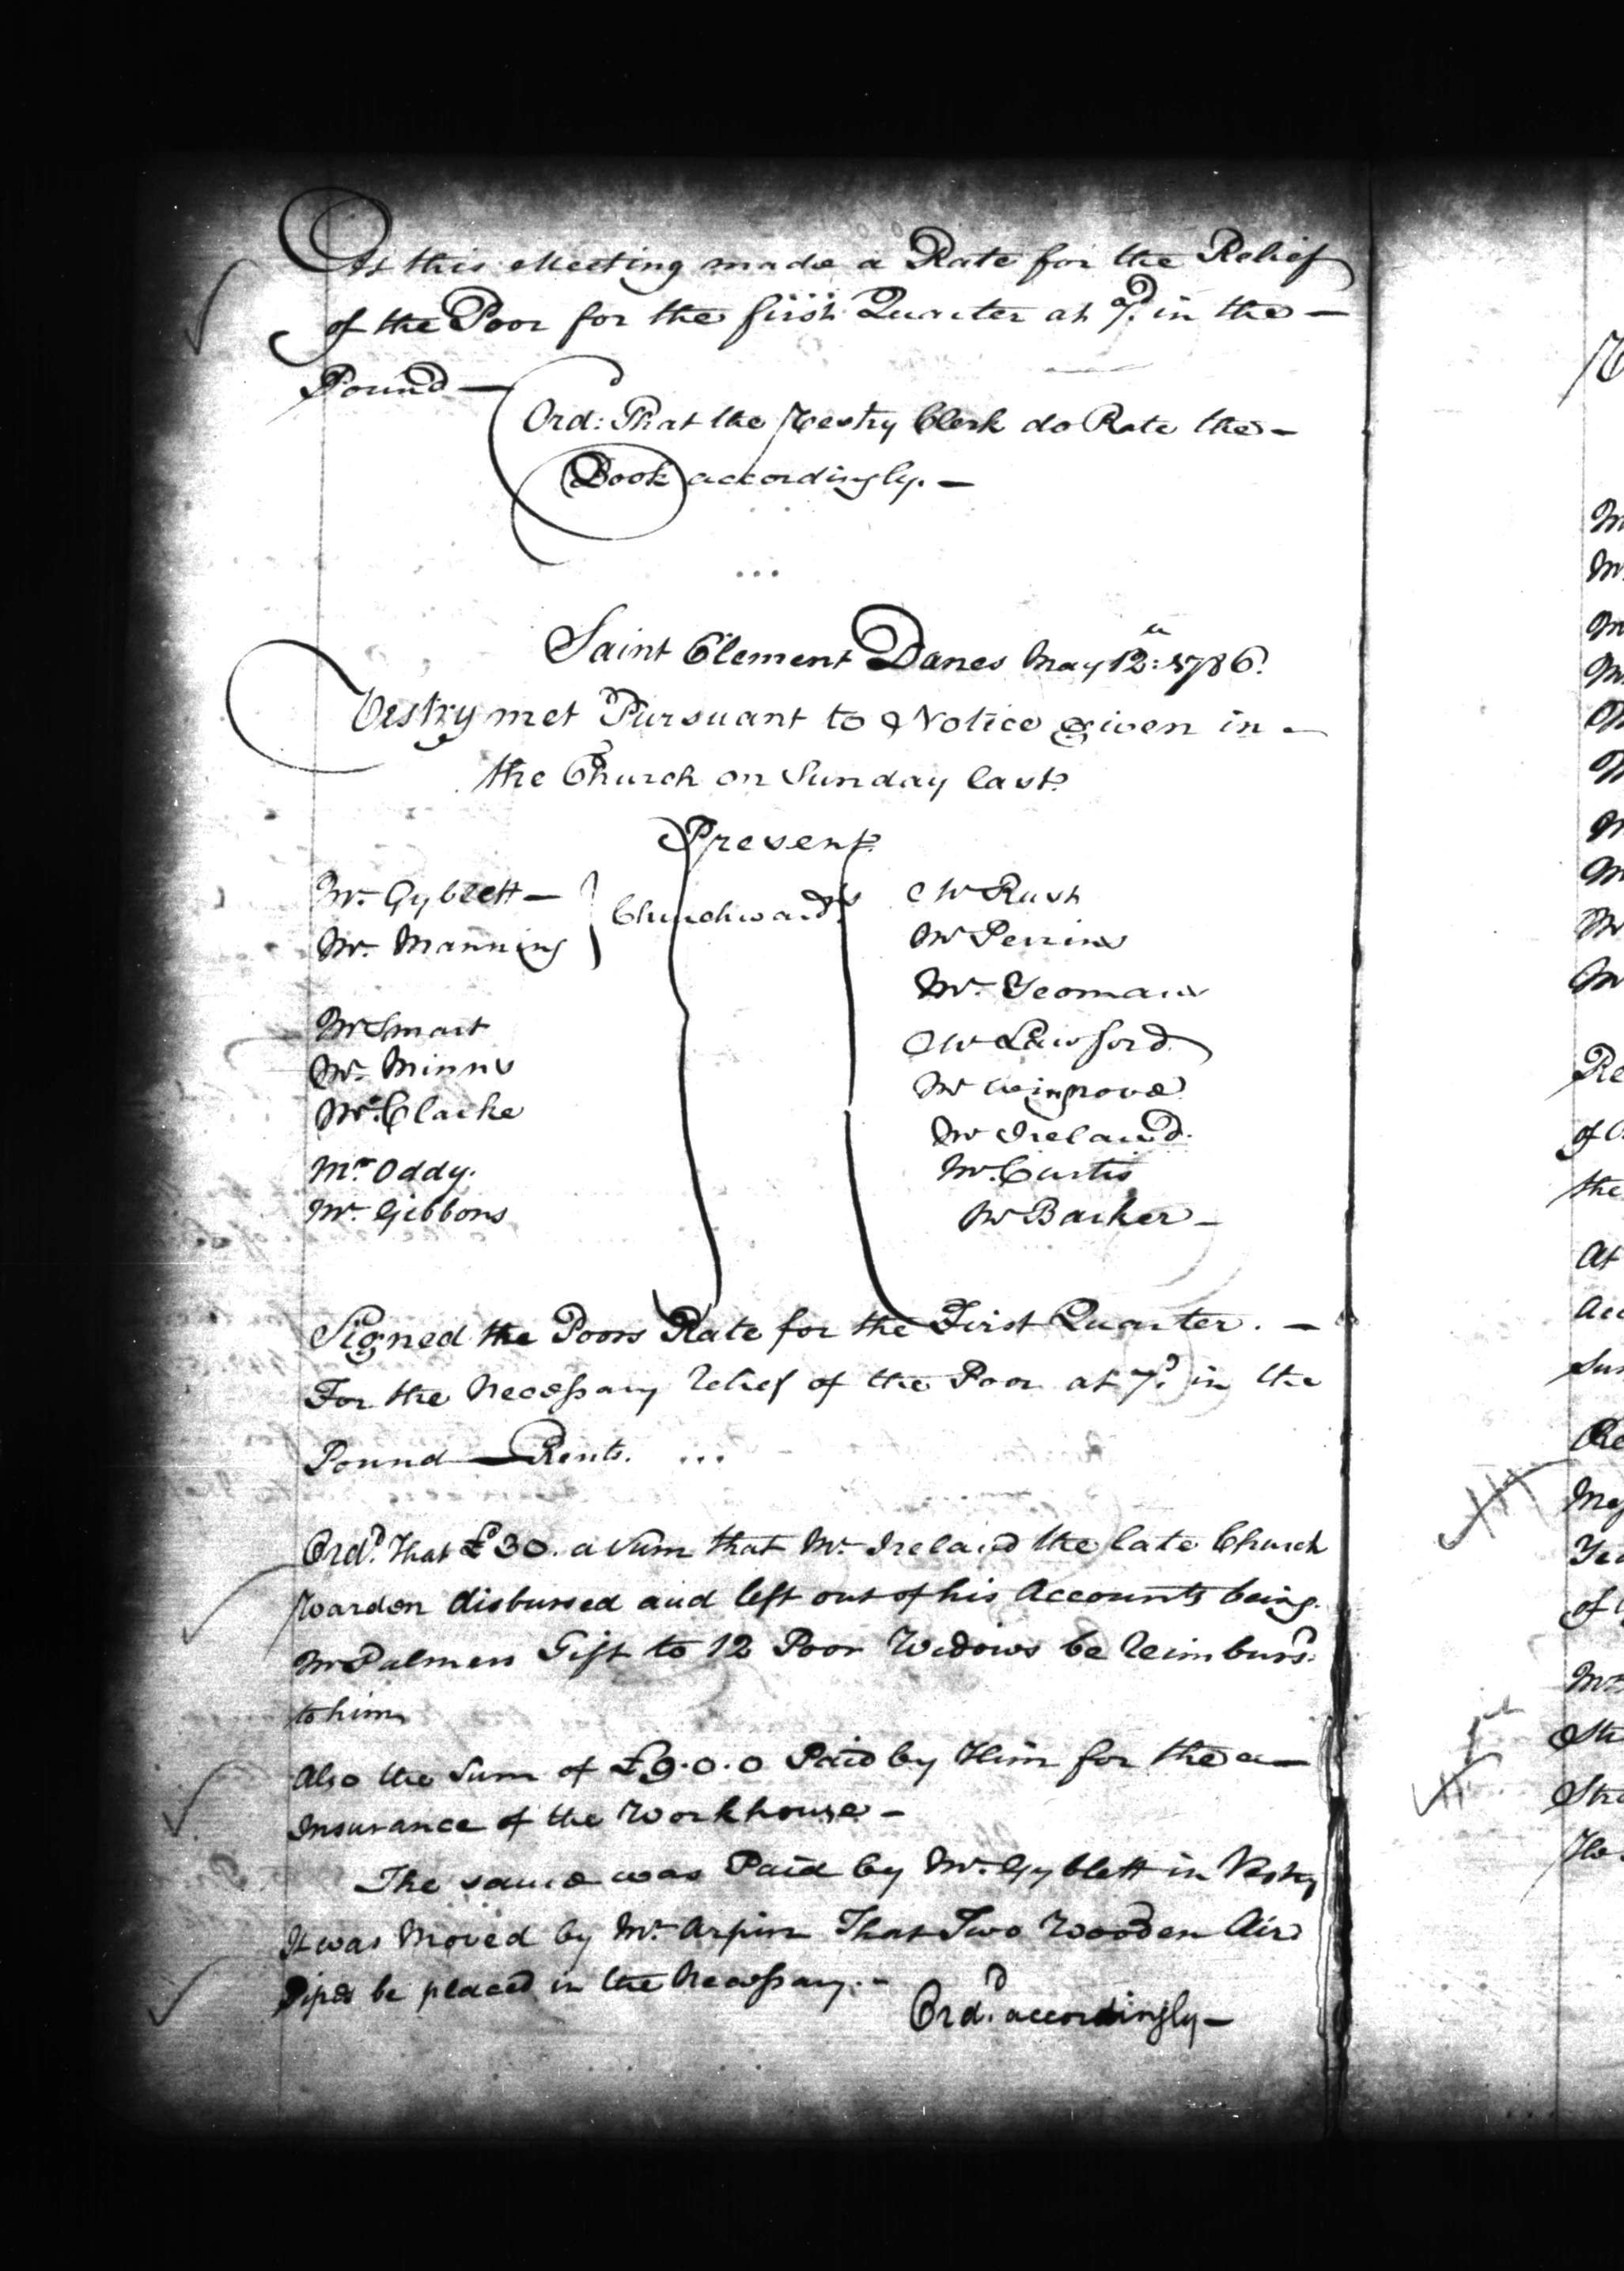 At this Meeting made a Rate for the Relief
of the Poor for the first Quarter at 7d. in the —
Pound —
Ord: That the Vestry Clerk do Rate the —
Book accordingly. —
...
Saint Clement Danes May 12th: 1786.
Vestry met Pursuant to Notice given in —
the Church on Sunday last.
Present
Mr. Gyblett —
Mr. Manning
Churchwards
Mr Smart
Mr. Minns
Mr. Clarke
Mr. Oddy.
Mr. Gibbons
Mr Rush
Mr Perrins
Mr. Yeomans
Mr Lawford
Mr Wingrove
Mr Ireland.
Mr. Curtis
Mr Barker —
Signed the Poors Rate for the First Quarter. —
For the Necessary Relief of the Poor at 7d. in the
Pound — Rents. ...
Ord.d That £30. a Sum that Mr. Ireland the late Church
Warden disbursed and left out of his Accounts being.
Mr Palmers Gift to 12 Poor Widows be Reimburs'd.
to him
Also the Sum of £9.0.0 Paid by Him for the —
Insurance of the Workhouse —
The same was Paid by Mr. Gyblett in Vestry
It was Moved by Mr. Arpin That Two Wooden Air
Pipes be placed in the Necessary. —
Ord.d accordingly —
Re
of
the
At
Acc
Sun
of